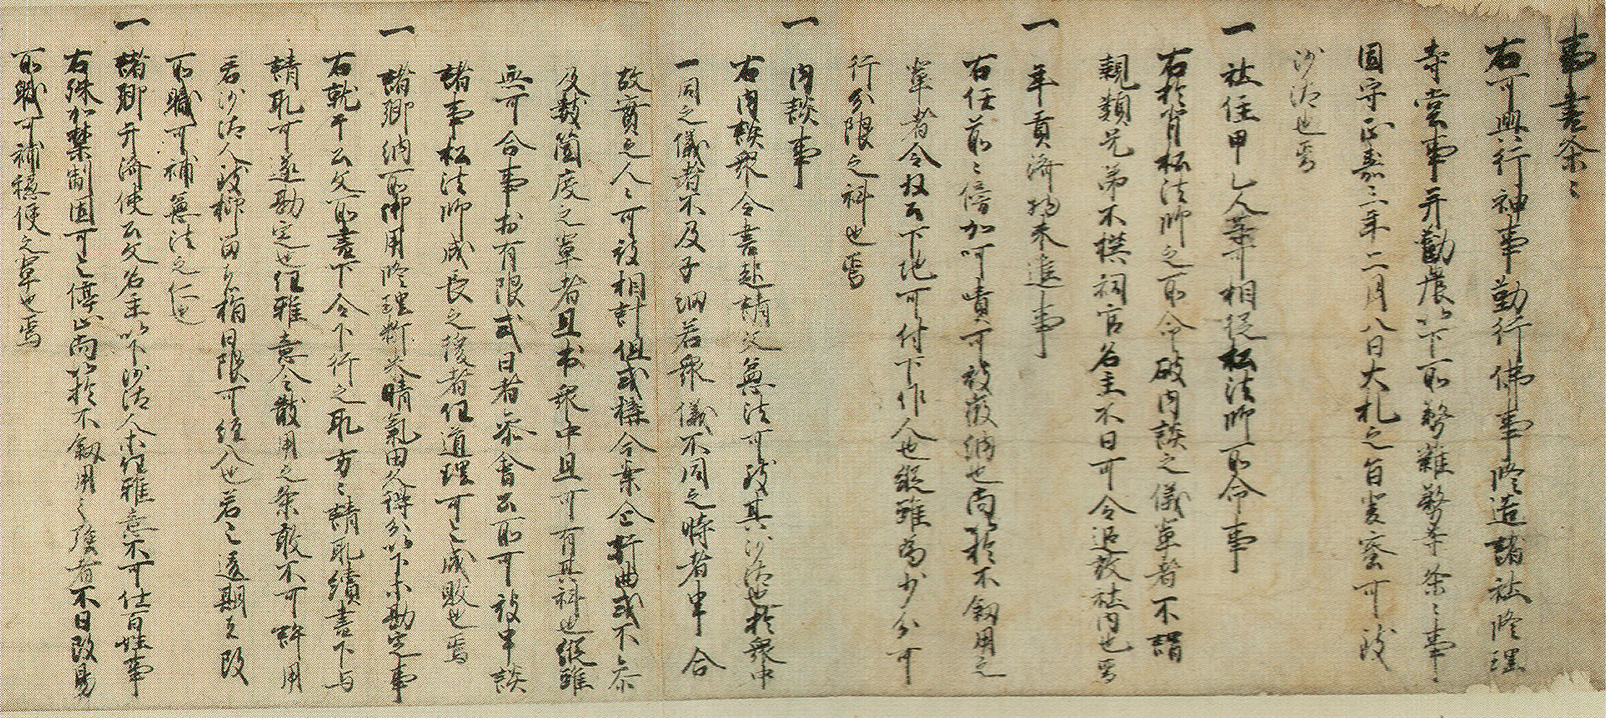 事書条々
右可興行神事勤行佛事修造諸社修理
寺堂事并勧農以下所務雑務等条々事
固守正嘉二年二月八日大札之旨蜜可致
沙汰也焉
一 社住甲乙人等可相従松法師所命事
右於背松法師之所命破内談之儀輩者不謂
親類兄弟不撰祠官名主不日可令追放社内也焉
一 年貢済物未進事
右任前々倍加呵責可被徴納也尚以於不叙用之
輩者令収公下地可付下作人也縦雖為少分可
行分限之科也焉
一 内談事
右内談衆令書起請文無法可致其沙汰也於衆中
一同之儀者不及子細若衆儀不同之時者串合
故實之人々可被相計但或構今案企奸曲或不参
及数箇度之輩者且於衆中且可有其科也縦雖
無可合事於有限式日者参會公所可被串談
諸事松法師成長之後者任道理可之成敗也焉
一 諸郷納所用修理料大晴氣田久得分以下勘定事
右就干公文所書下令下行之取方々請取續書下与
請取可遂勘定也任雅意令散用之条敢不可許用
若沙汰人致抑留者指日限可経入也若之遠期者改
所職可補無法之仁也
一 諸郷弁済使公文名主以下沙汰人等任雅意不可仕百姓事
右殊加禁制固可之停止尚以於不叙用之強者不日改易
所職可補穏便之輩也焉